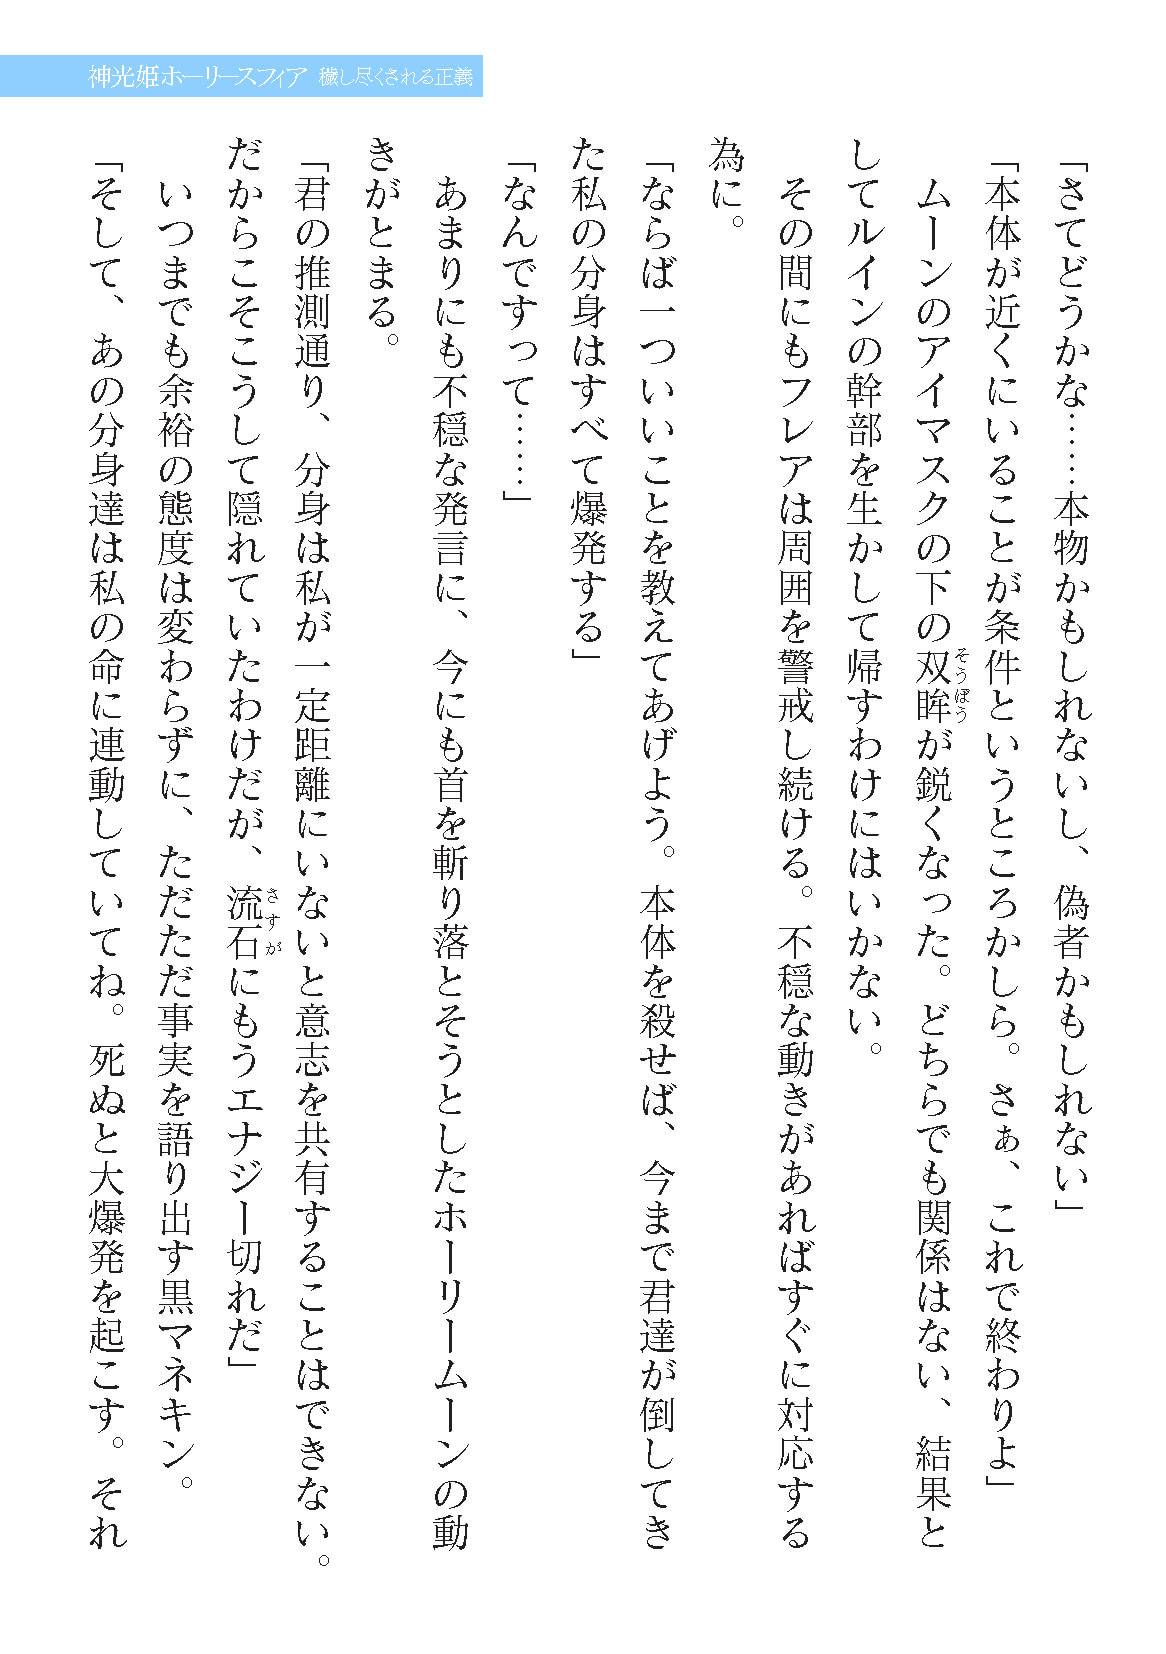 神光姫ホーリースフィア 穢し尽くされる正義
「さてどうかな……本物かもしれないし、偽者かもしれない」
「本体が近くにいることが条件というところかしら。さぁ、これで終わりよ」
　ムーンのアイマスクの下の双眸が鋭くなった。どちらでも関係はない、結果と
そうぼう
してルインの幹部を生かして帰すわけにはいかない。
　その間にもフレアは周囲を警戒し続ける。不穏な動きがあればすぐに対応する
為に。
「ならば一ついいことを教えてあげよう。本体を殺せば、今まで君達が倒してき
た私の分身はすべて爆発する」
「なんですって……」
　あまりにも不穏な発言に、今にも首を斬り落とそうとしたホーリームーンの動
きがとまる。
「君の推測通り、分身は私が一定距離にいないと意志を共有することはできない。
だからこそこうして隠れていたわけだが、流石にもうエナジー切れだ」
さすが
　いつまでも余裕の態度は変わらずに、ただただ事実を語り出す黒マネキン。
「そして、あの分身達は私の命に連動していてね。死ぬと大爆発を起こす。それ